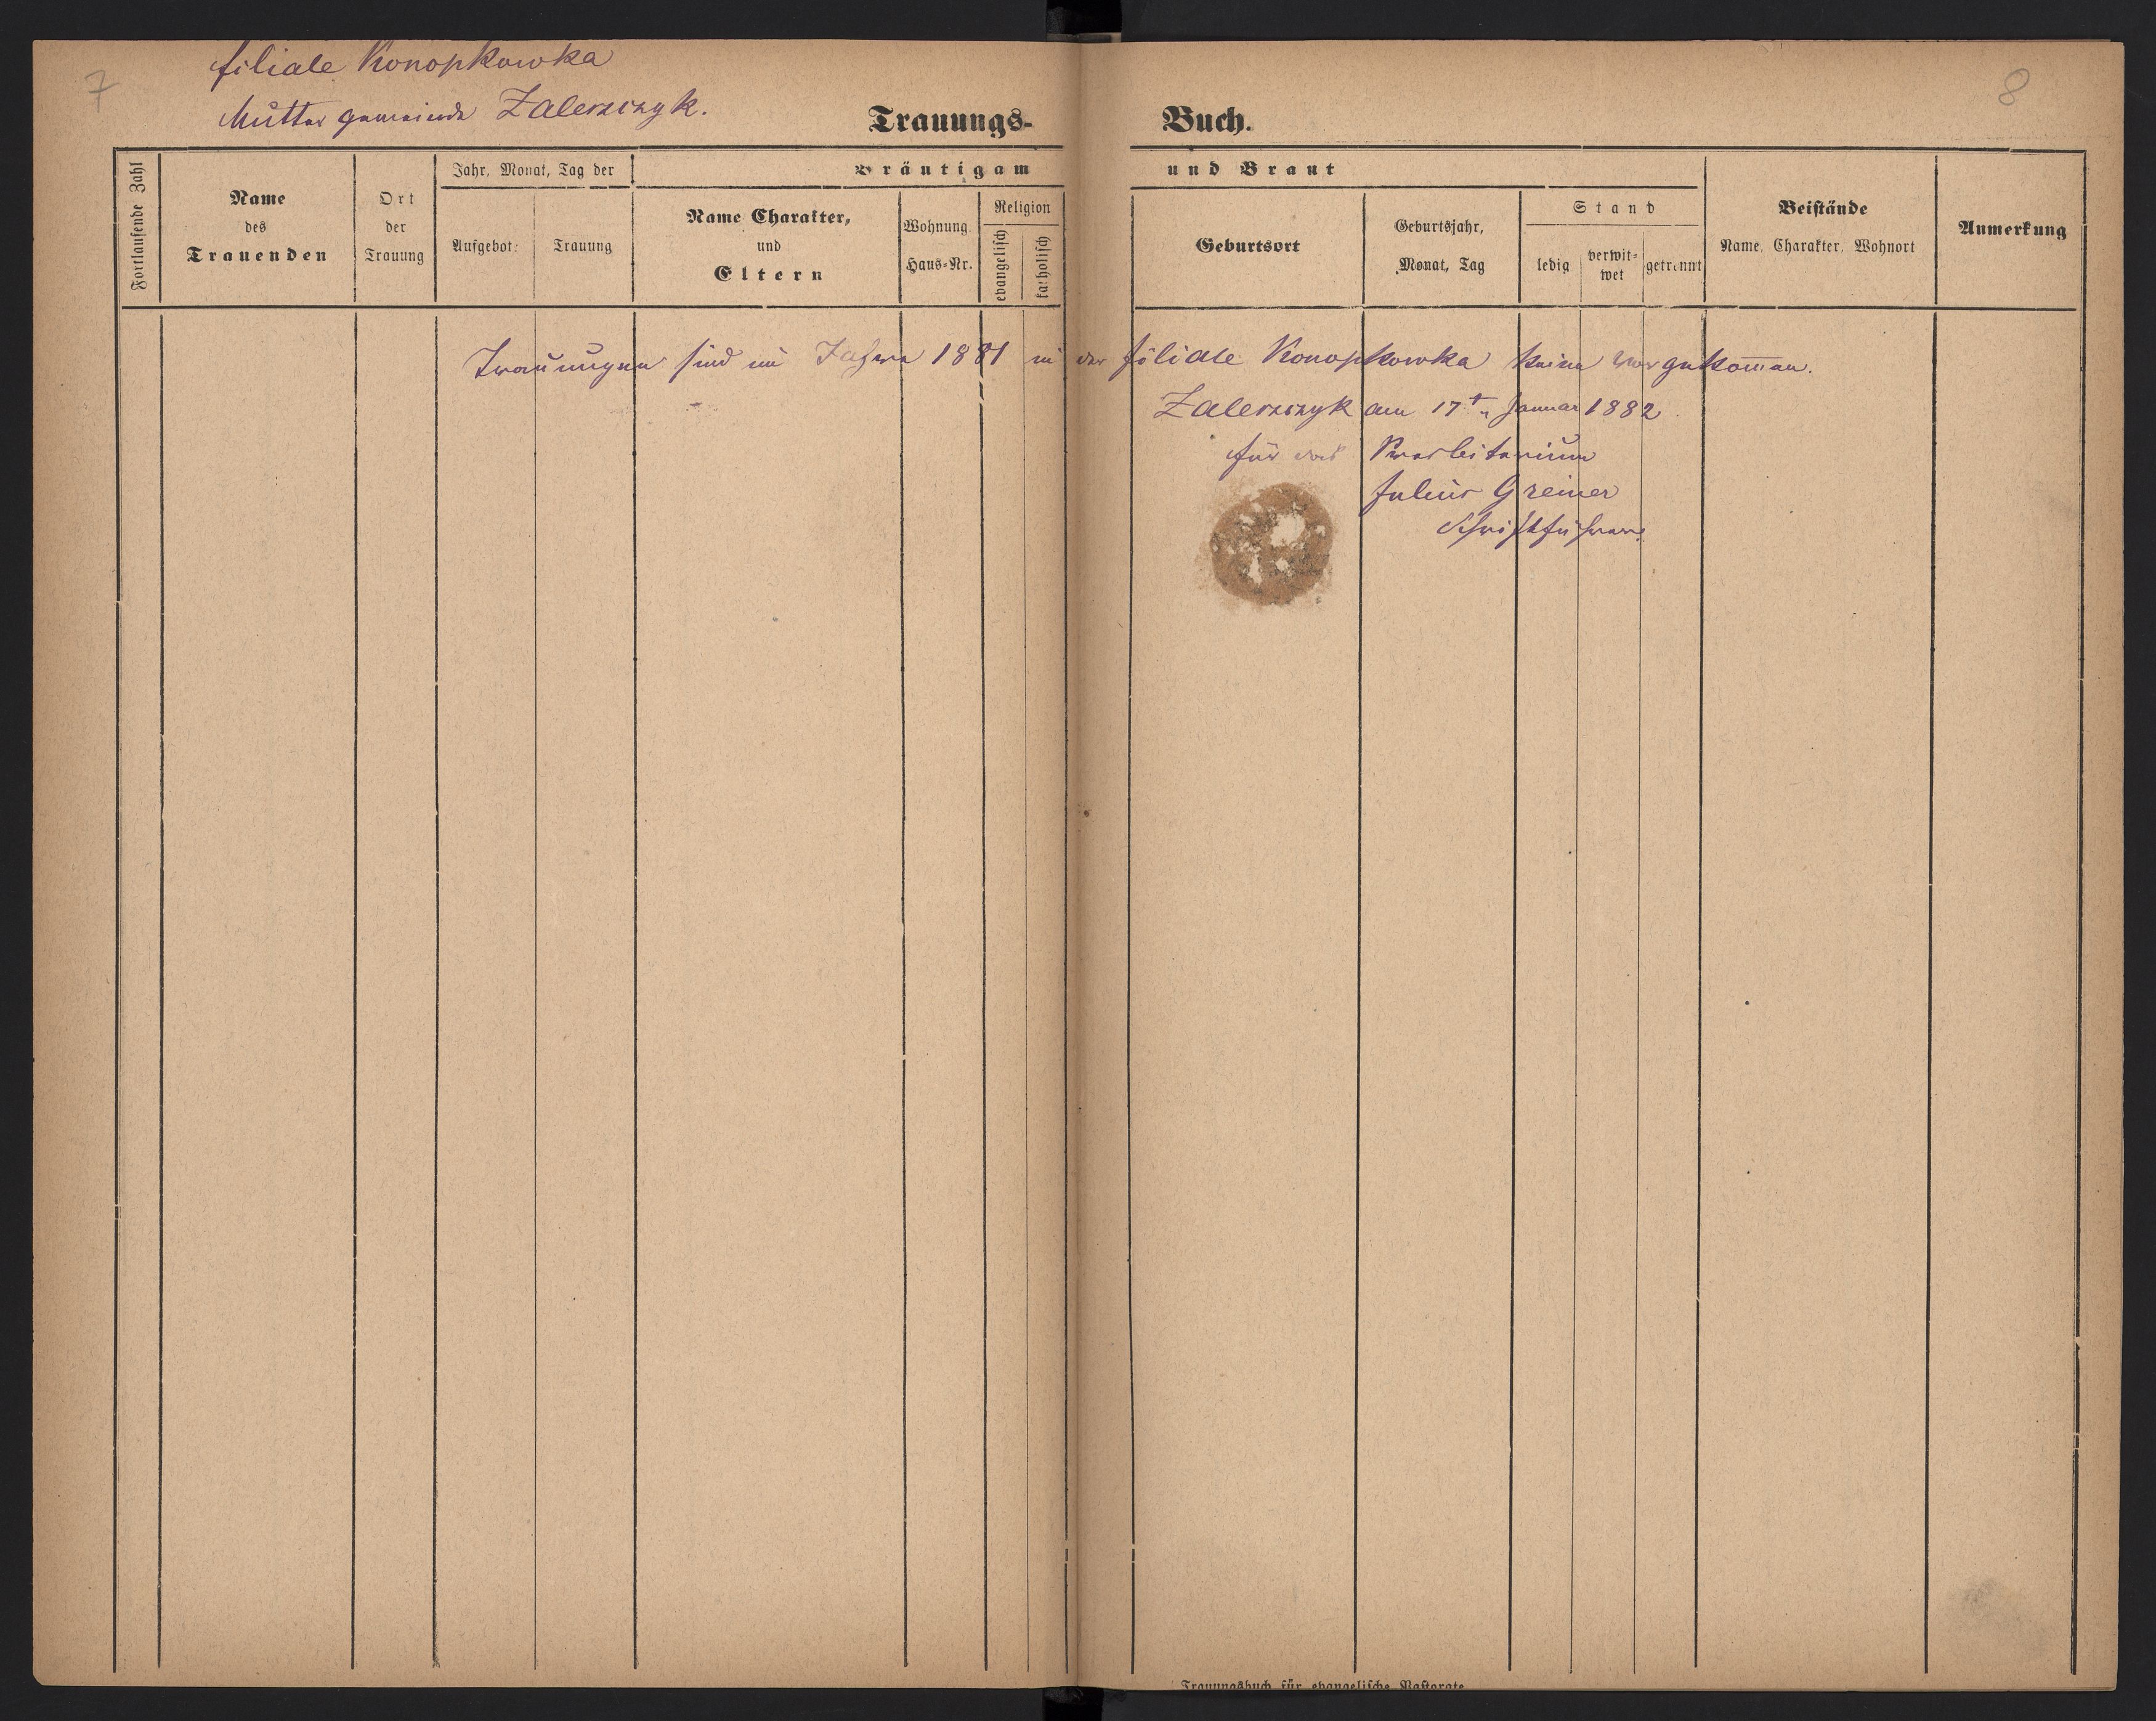 7
filiale Konopkowka
Muttergemeinde Zaleszczyk.
Trauungs-
Fortlaufende Zahl
Name
des
Trauenden
Ort
der
Trauung
Jahr, Monat, Tag der
Aufgebot:
Trauung
Bräutigam
Name Charakter,
und
Eltern
Wohnung
Haus-Nr.
Religion
evangelisch
katholisch
8
Buch.
und Braut
Geburtsort
Geburtsjahr,
Monat, Tag
Stand
ledig
verwit-
wet
getrennt
Beistände
Name, Charakter, Wohnort
Anmerkung
Trauungen sind im Jahre 1881 in der filiale Konopkowka keine vorgekom̄en.
Zaleszczyk am 17tn Januar 1882.
für das Presbiterium
Julius Greiner
Schriftführer.
Trauungsbuch für evangelische Pastorate